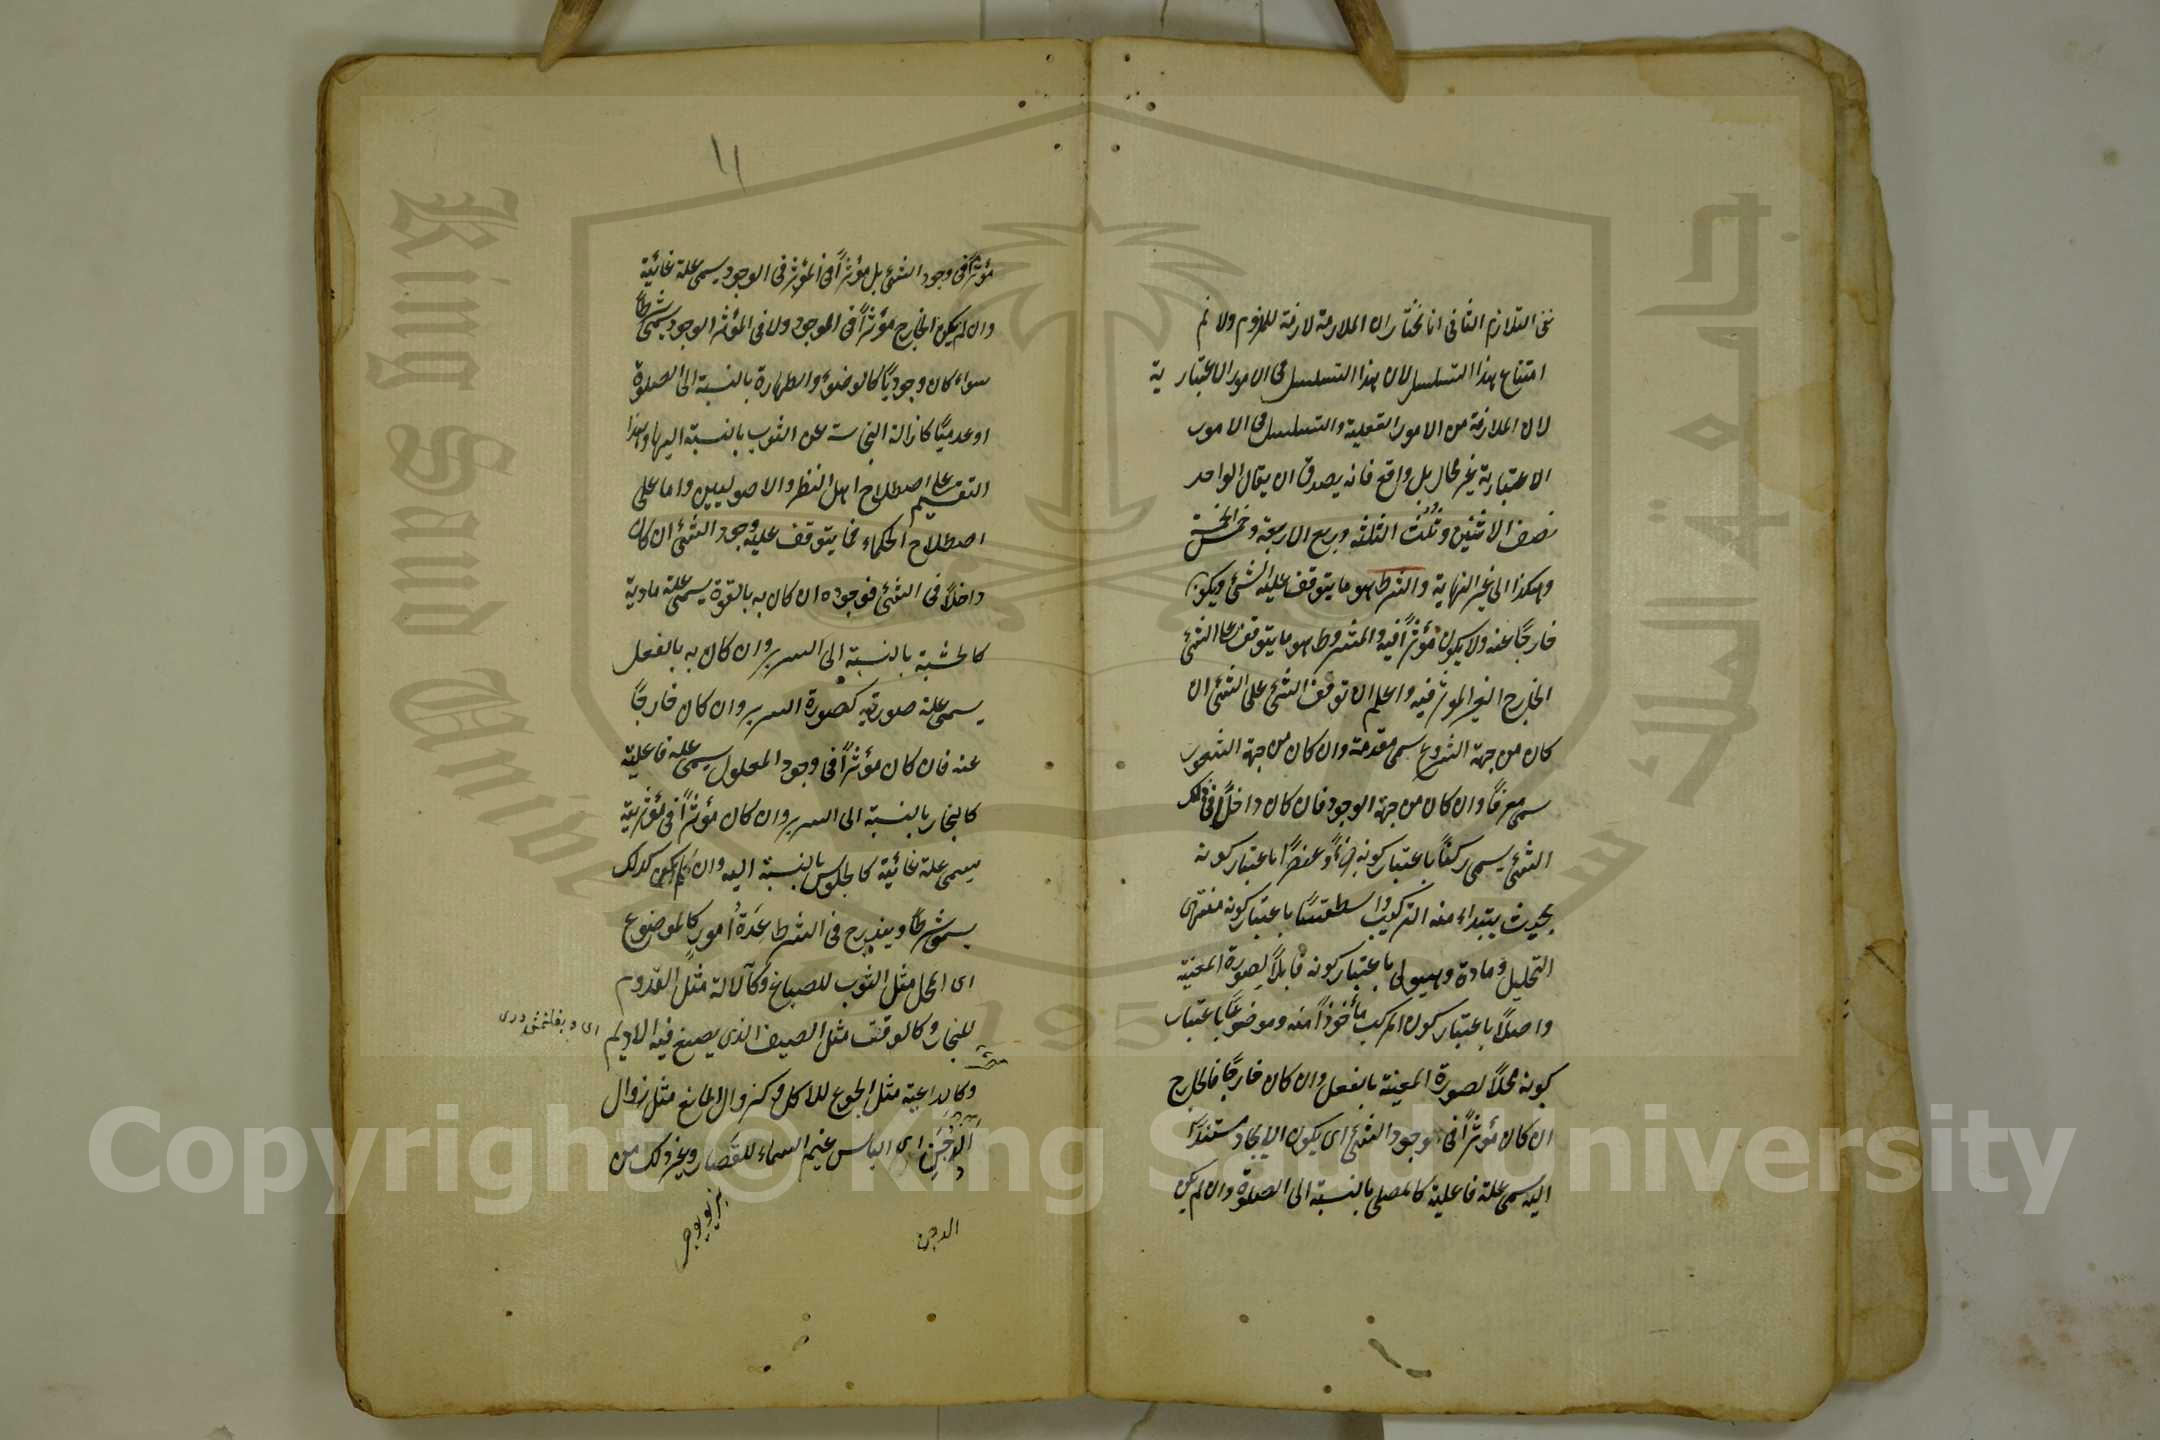 نفى التلازم الثانى انا نختار ان الملازمة لازمة للملزوم ولا نم
امتناع هذا التسلسل لان هذا التسلسل فى الامور الاعتبارية
لان الملازمة من الامور العقلية والتسلسل فى الامور
الاعتبارية غير محال بل واقع فانه يصدق ان يقال الواحد
نصف الاثنين وثُلُث الثلثة وربع الاربعة وخمس الخمسة
وهكذا الى غير النهاية والشرط هو ما يتوقف عليه الشئ ويكون
خارجًا عنه ولا يكون مؤثرًا فيه والمشروط هو ما يتوقف على الشئ
الخارج الغير المؤثر فيه واعلم ان توقف الشئ على الشئ ان
كان من جهة الشروع يسمى مقدمة وان كان من جهة الشعور
يسمى معرفًا وان كان من جهة الوجود فان كان داخلًا فى ذلك
الشئ يسمى ركنًا باعتبار كونه جزءً وعنصرًا باعتبار كونه
بحيث يبتداء منه التركيب واسطقسًا باعتبار كونه منتهى
التحليل ومادة وهيولى باعتبار كونه قابلًا لصورة المعينة
واصلًا باعتبار كون المركب مأخوذًا منه وموضوعًا باعتبار
كونه محلًا لصورة المعينة بالفعل وان كان خارجًا فالخارج
ان كان مؤثرًا فى وجود الشئ اى يكون الايجاد مستندًا
اليه يسمى علة فاعلية كالمصلى بالنسبة الى الصلوة وان لم يكن
١١
مؤثرًا فى وجود الشئ بل مؤثرًا فى المؤثر فى الوجود يسمى علة غائية
وان لم يكن الخارج مؤثرًا فى الوجود ولا فى المؤثر الوجود يسمى شرطًا
سواء كان وجوديًا كالوضوء والطهارة بالنسبة الى الصلوة
او عدميًا كازالة النجاسة عن الثوب بالنسبة اليها وهذا
التقسيم على اصطلاح اهل النظر والاصوليين واما على
اصطلاح الحكماء فما يتوقف عليه وجود الشئ ان كان
داخلًا فى الشئ فوجوده ان كان به بالقوة يسمى علة مادية
كالخشبة بالنسبة الى السرير وان كان به بالفعل
يسمى علة صورية كصورة السرير وان كان خارجًا
عنه فان كان مؤثرًا فى وجود المعلول يسمى علة فاعلية
كالنجار بالنسبة الى السرير وان كان مؤثرًا فى مؤثرية
يسمى علة غائية كالجلوس بالنسبة اليه وان لم يكن كذلك
يسمى شرطًا ويندرج فى الشرط عدّة اُمور كالموضوع
اى المحل مثل الثوب للصباغ وكآلالة مثل القدوم
للنجار وكالوقت مثل الصيف الذى يصبغ فيه الاديم
وكالداعية مثل الجوع للاكل وكزوال المانع مثل زوال
الدَّجْن اى الباس غيم السماء للقصّار وغير ذلك من
الدجن